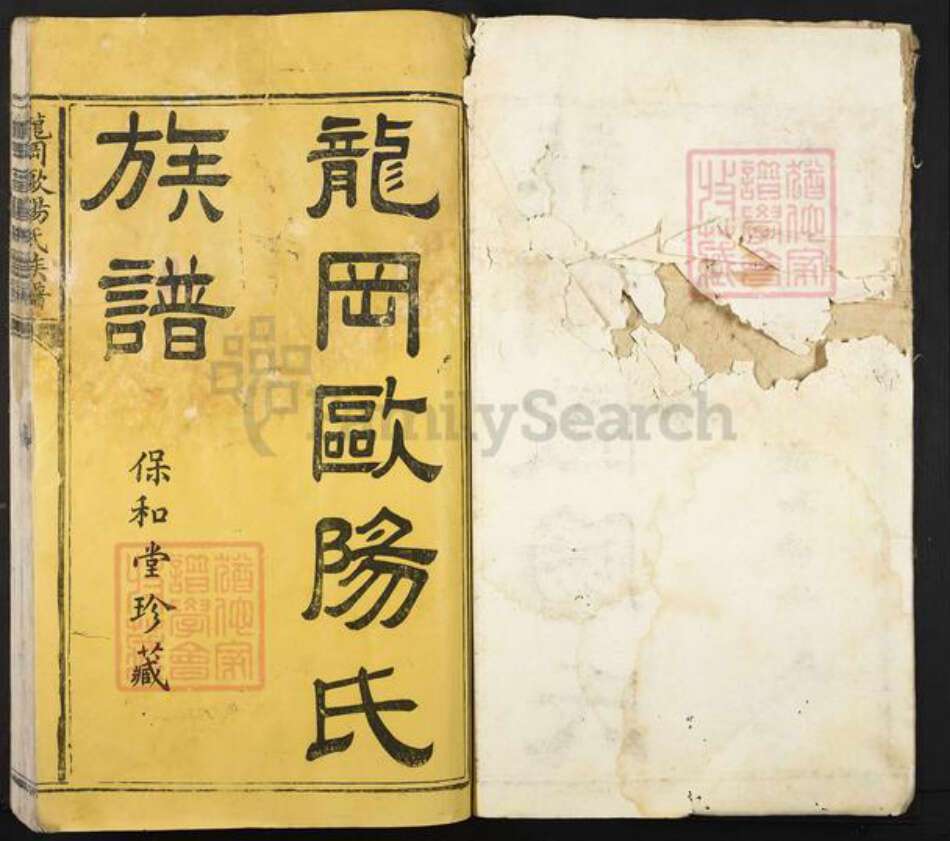 龍岡歐陽氏
族譜
保和堂珍藏
龍岡歐陽氏族譜
FamilySearch
猶他家
譜學會
收藏
猶他家
譜學會
收藏